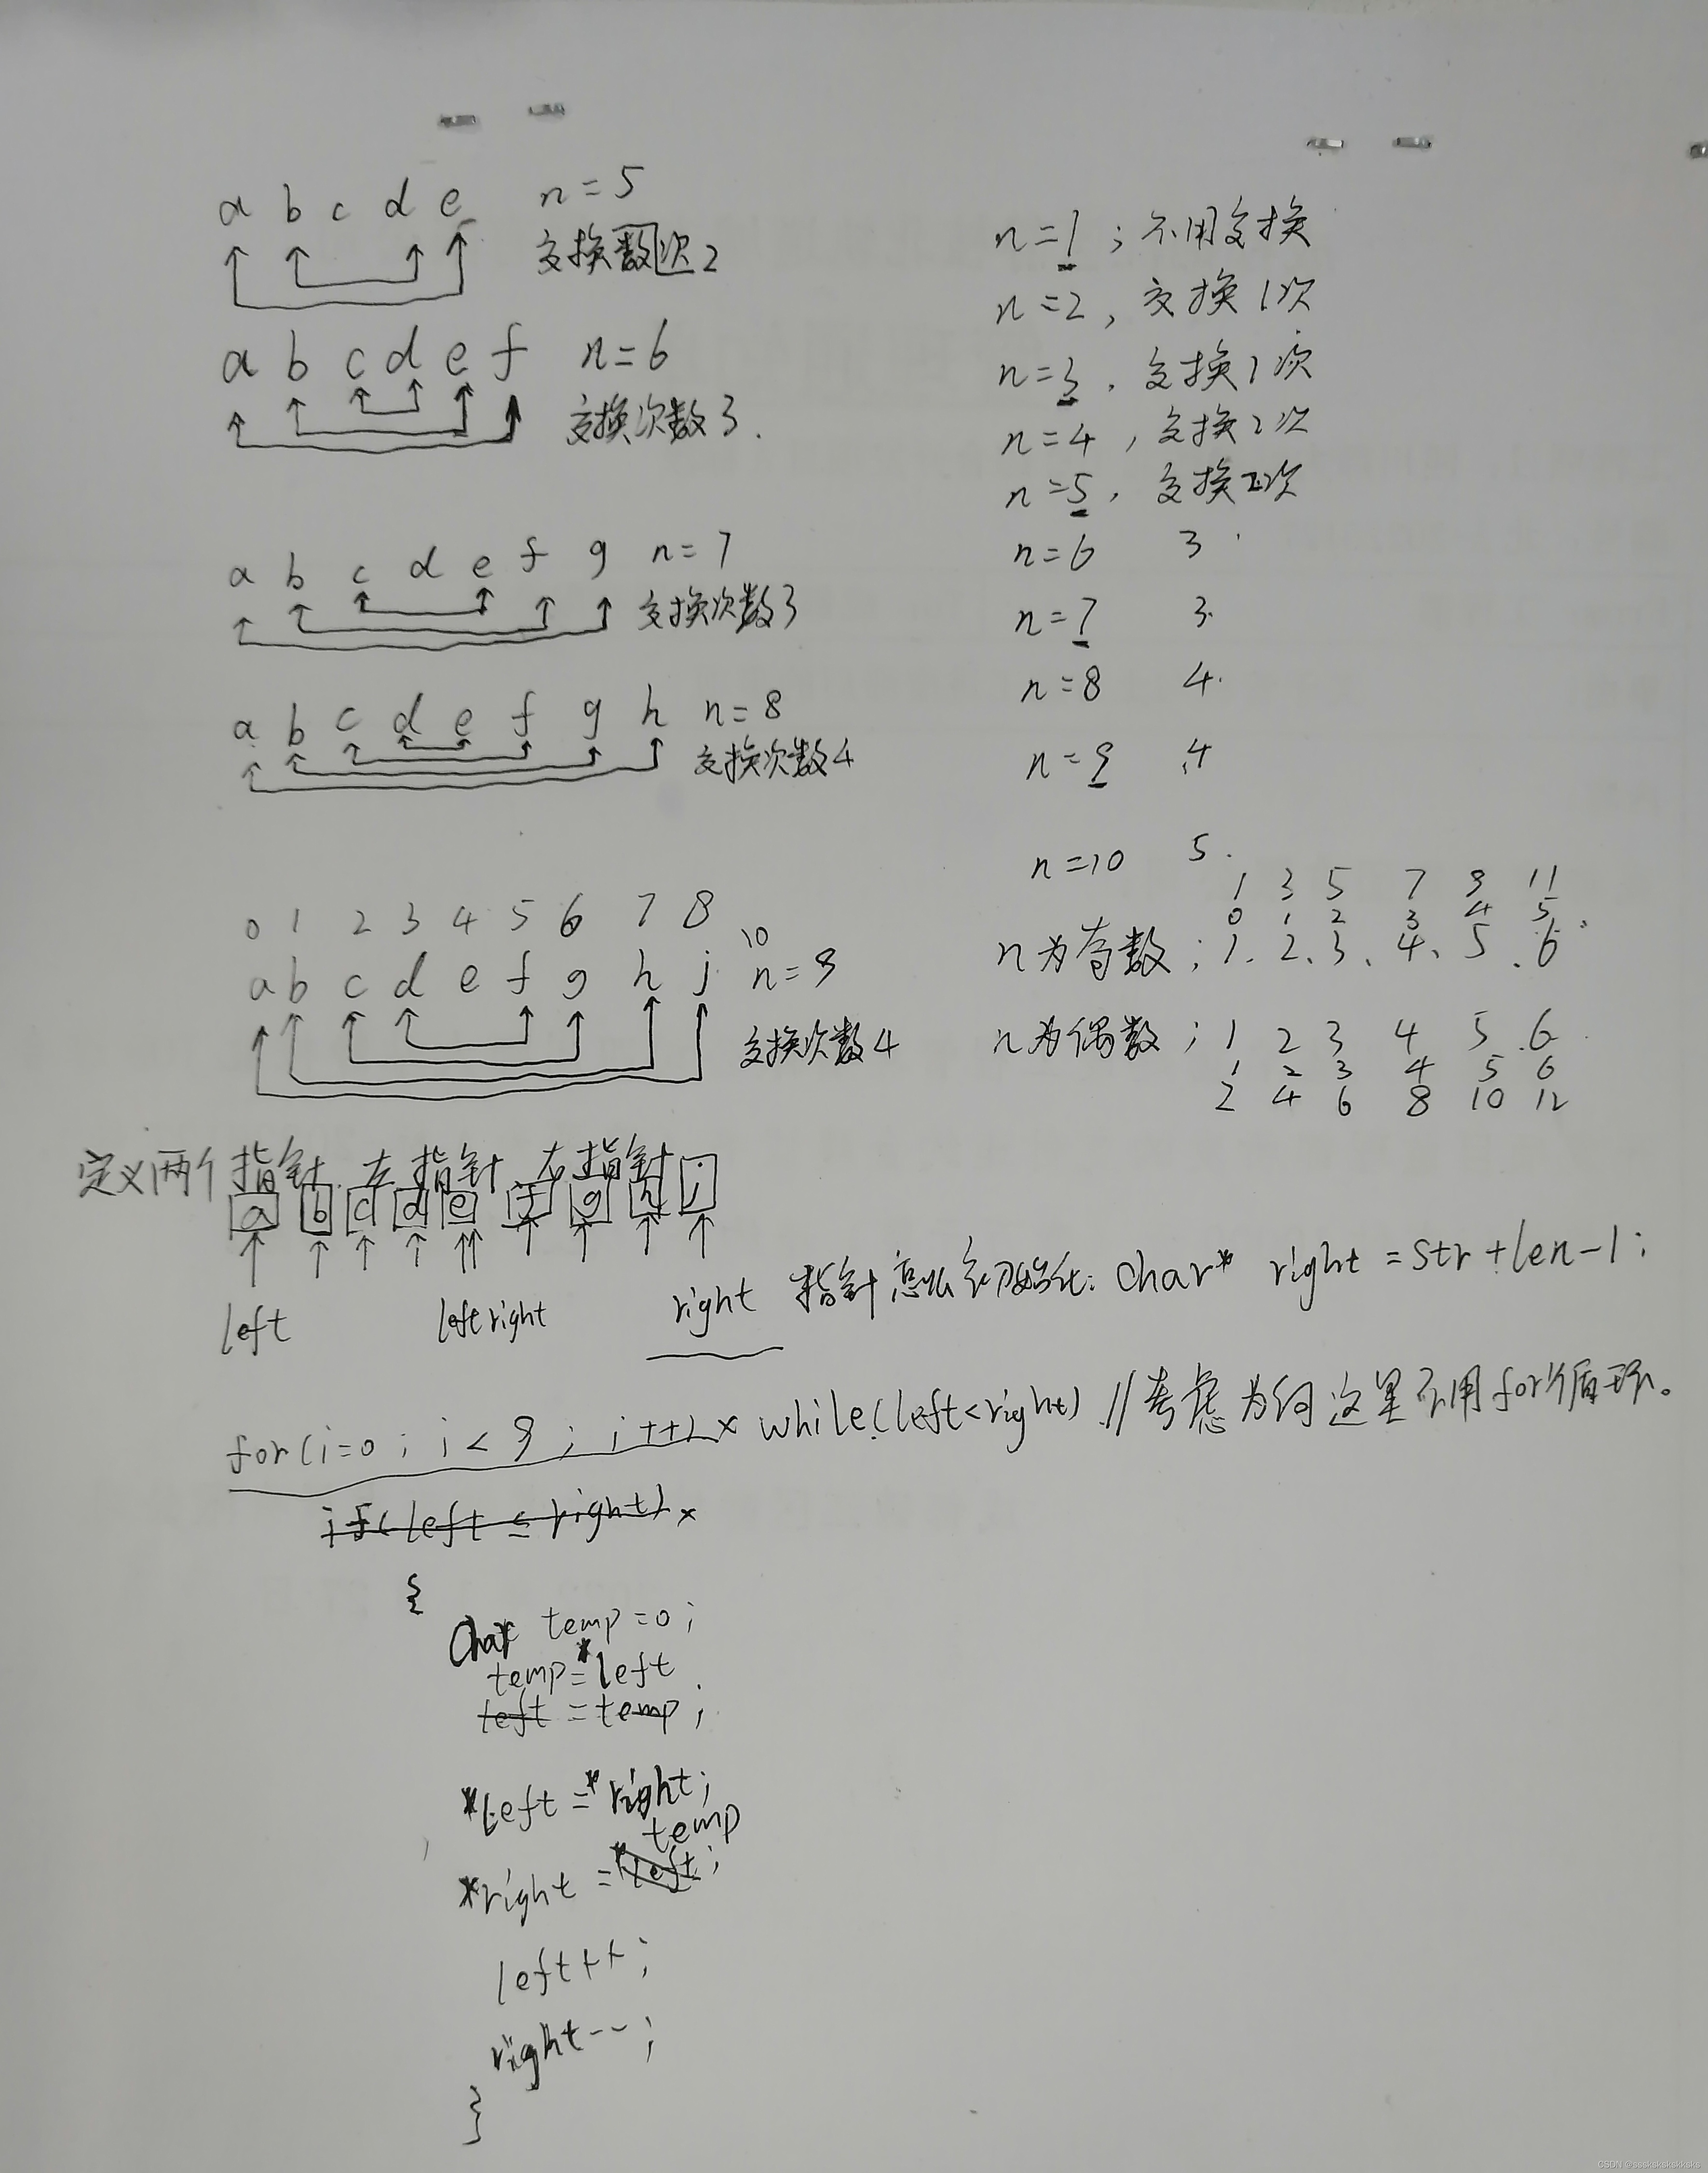 a b c d e n=5
交换数次2
a b c d e f n=6
交换次数3.
a b c d e f g n=7
交换次数3
a b c d e f g h n=8
交换次数4
0 1 2 3 4 5 6 7 8
10
a b c d e f g h j n=9
交换次数4
n=1;不用交换
n=2,交换1次
n=3,交换1次
n=4,交换2次
n=5,交换2次
n=6 3
n=7 3.
n=8 4.
n=9 4
n=10 5.
1 3 5 7 9 11
0 1 2 3 4 5
n为奇数;1、2、3、4、5、6
n为偶数;1 2 3 4 5 6
1 2 3 4 5 6
2 4 6 8 10 12
定义两个指针.左指针 右指针
a b c d e f g h j
left left right right 指针怎么初始化:char* right=str+len-1;
for(i=0;i<9;i++)× while(left<right) //考虑为何这里不用for循环。
if(left≤right)×
{
char temp=0;
temp=*left
left=temp;
*left=*right;
temp
*right=*left;
left++;
right--;
}
CSDN @ssskskskskksks